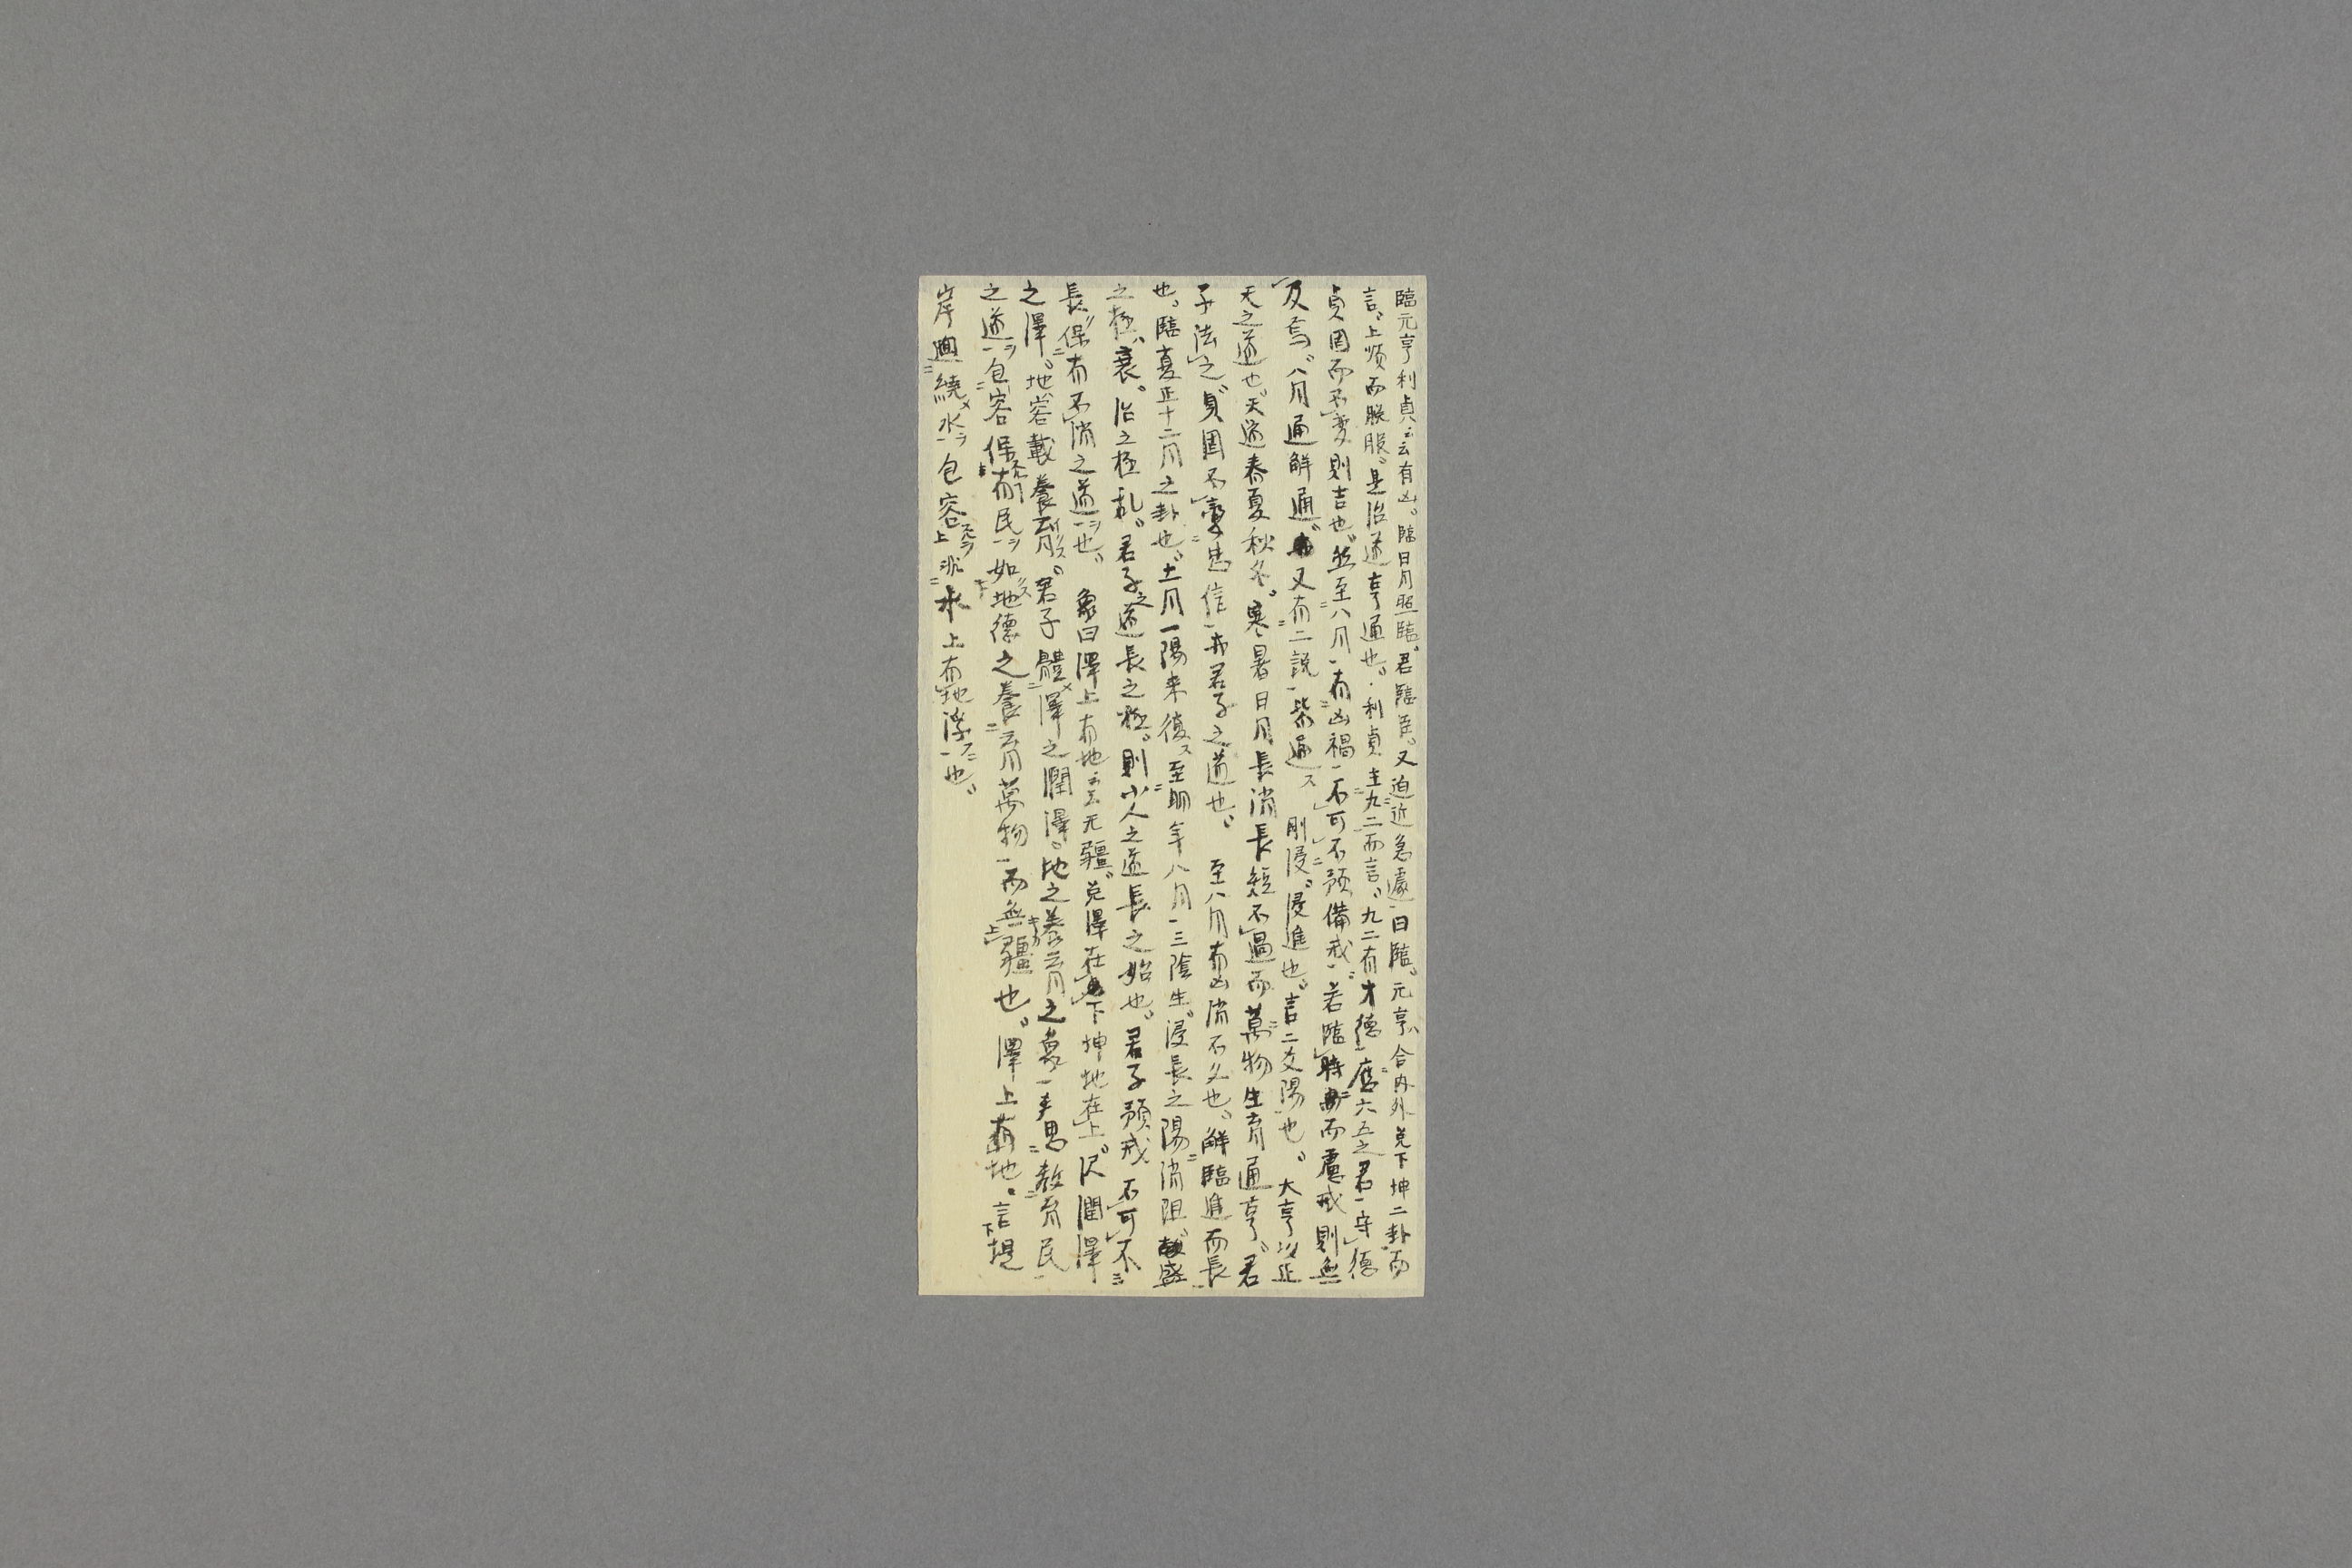 臨元亨利貞云云有凶。臨日月照臨。君臨臣。又迫近急遽曰臨。元亨ハ合内外兌下坤二卦而
言。上順而脱服。是治道亨通也。利貞主九二而言。九二有才德應六五之君守德
貞固而不変則吉也。然至八月有凶禍不可不預備戒。若臨時而慮戒則無
及焉。八月通解通。又有二説皆通ス 剛浸。浸進也。言二爻陽也。大亨以正
天之道也。天道春夏秋冬。寒暑日月長消長短不過而萬物生育通亨。君
子法之。貞固不變忠信亦君子之道也。 至八月有凶消不久也。解臨進而長
也。臨夏正十二月之卦也。十一月一陽来復ス至明年八月三陰生。浸長之陽消阻。盛
之極衰。治之極乱。君子之道長之極。則小人之道長之始也。君子預戒不可不
長保有不消之道ヲ也。 象曰澤上有地云云无疆。兌澤在下坤地在上。沢潤澤
之澤。地容載養育ス。君子體メ澤之潤澤。地之養育之象夫思教育民
之道ヲ包容保有民ヲ如地德之養育萬物而無疆也。澤上有地。言堤
岸廻繞メ水ヲ包容スルヲ非水上有地浮フニ也。